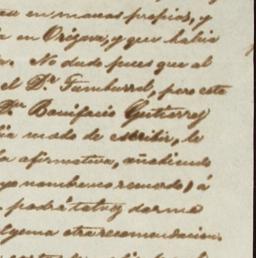 en manos propias, y
en Orizava, y que habia
No dudo pues que al
el Dr. Fumbarrel, pero este
Dn. Bonifacio Gutierrez
modo de escribir, le
la afirmativa, añadiendo
yo nombre no recuerdo) á
podrá talvez darme
alguna otra recomendacion.